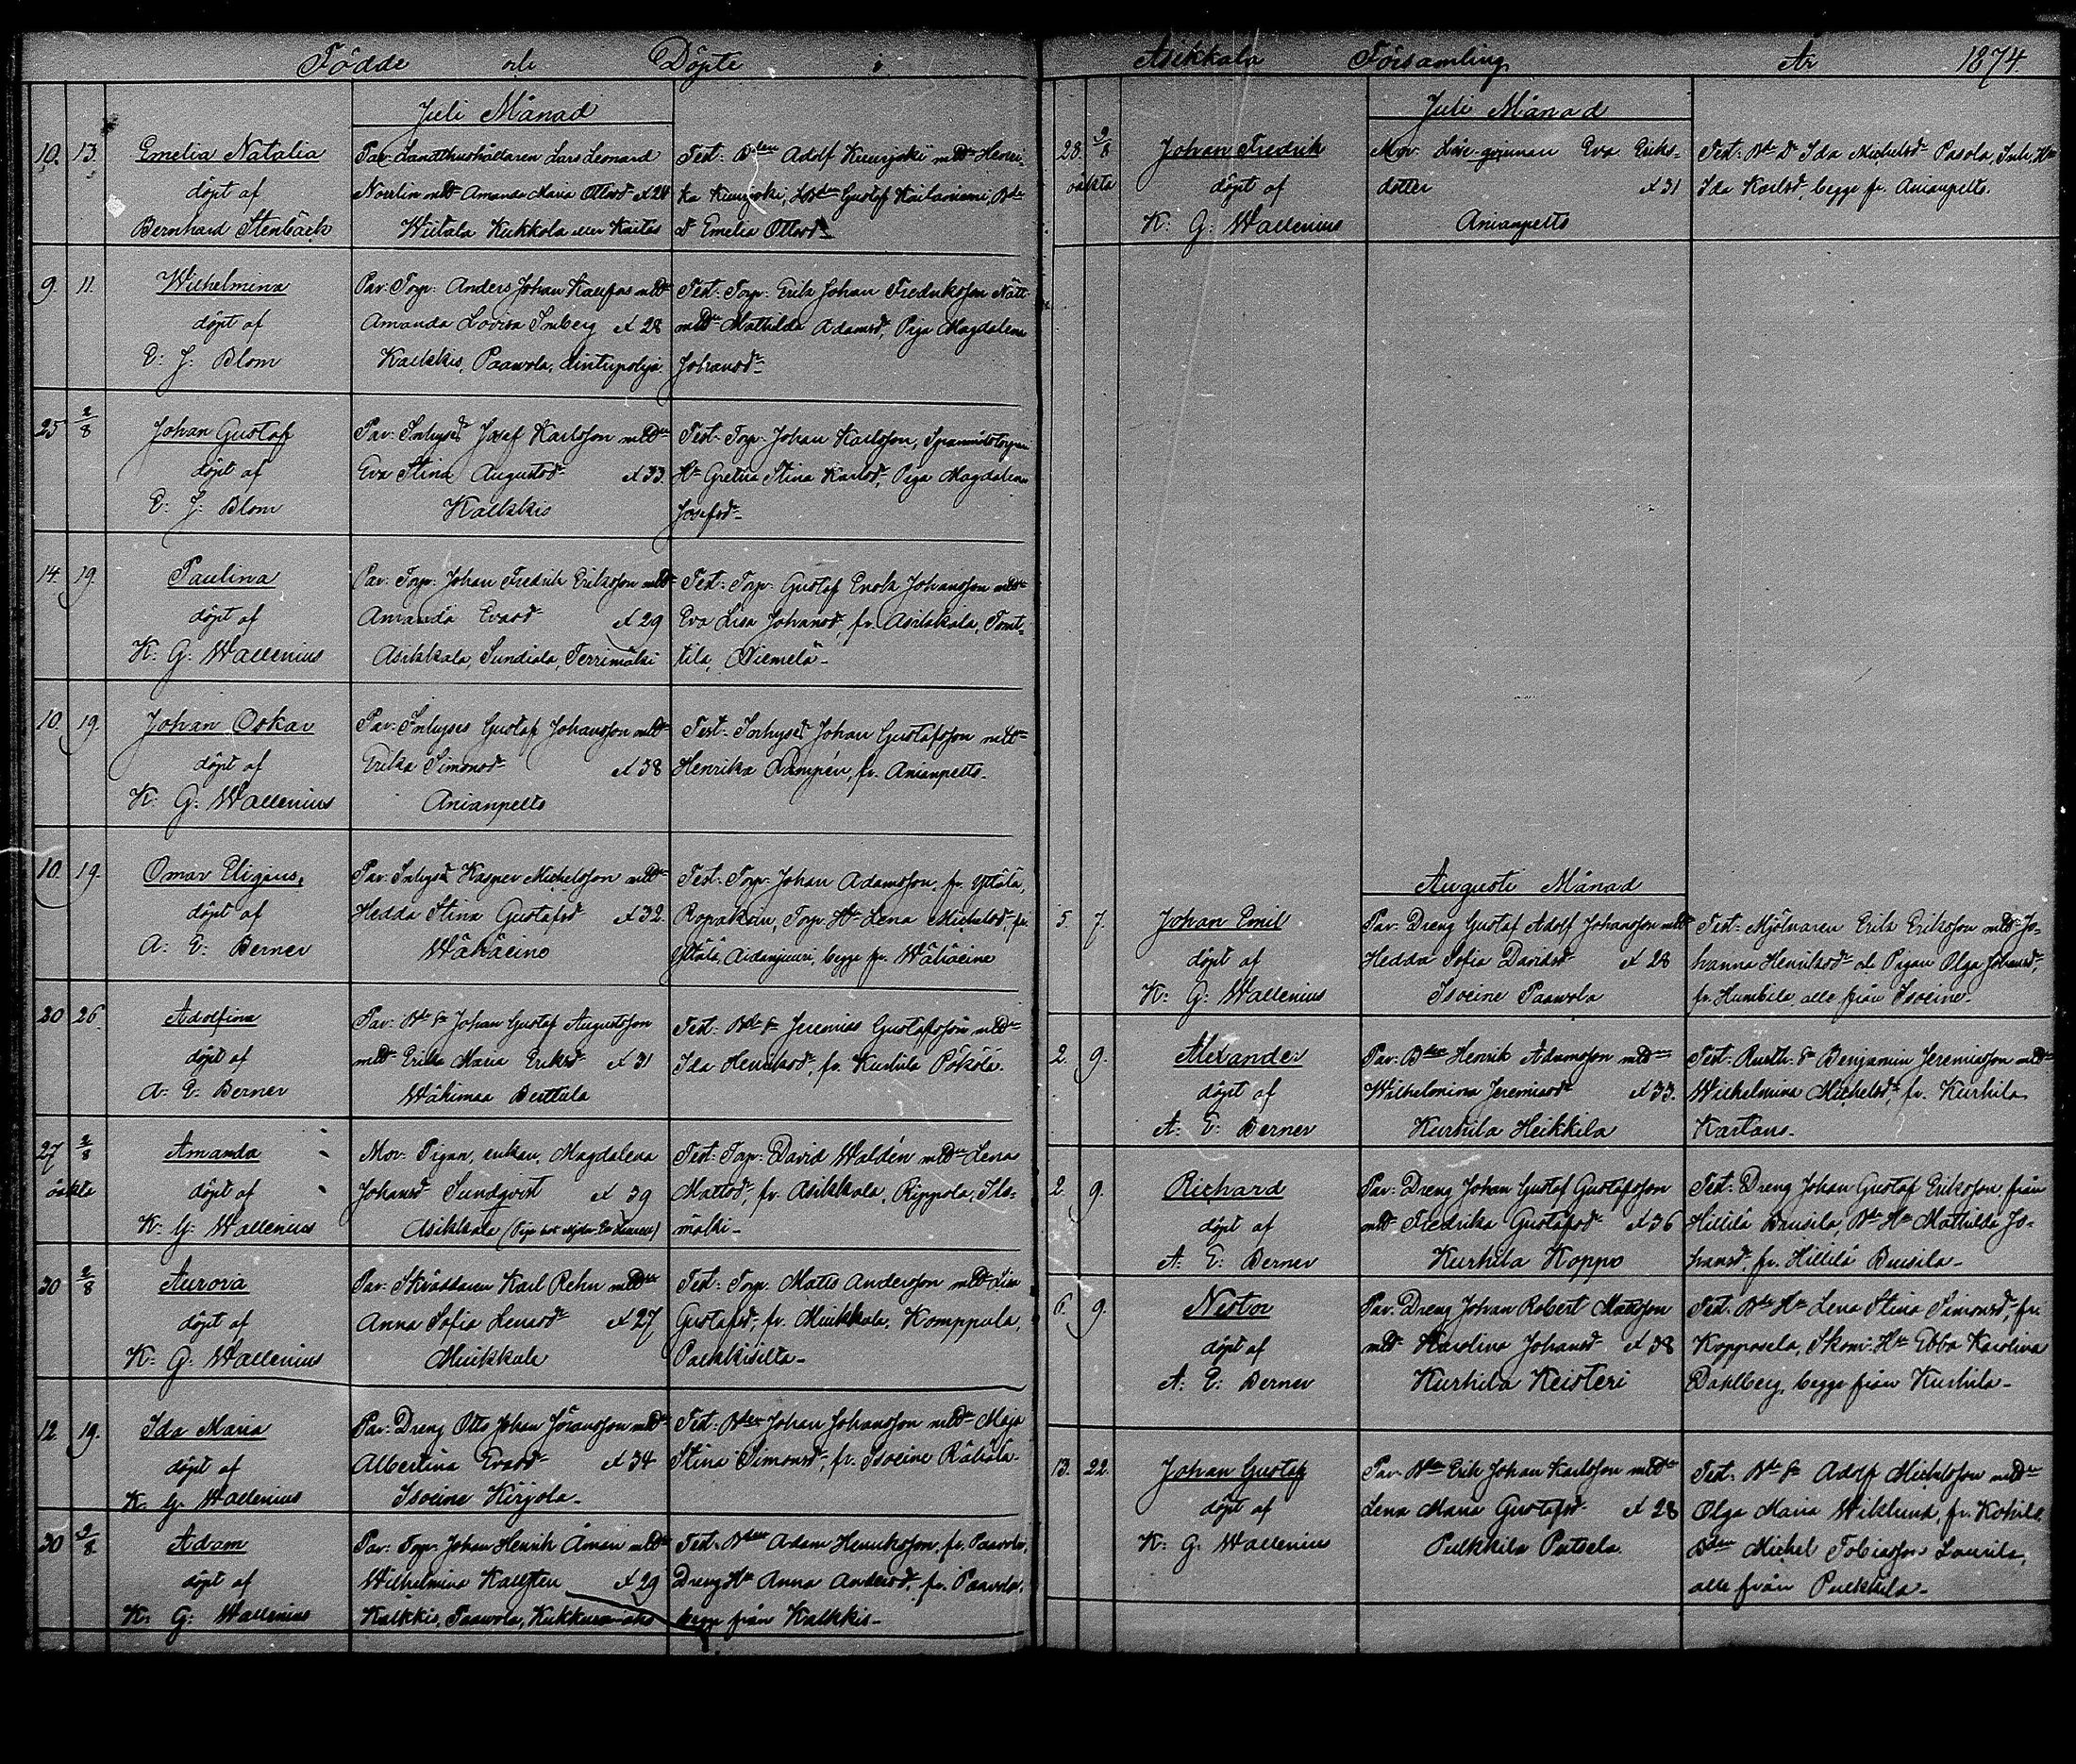 Födde och Döpte i
Juli Månad
10. 13. Emelia Natalia
döpt af
Bernhard Stenbäck
Par: Landthushållaren Lars Leonard
Norelin med Amanda Maria Ottosd. Æt 24
Wiitala Kukkola eller Kaitas
Test: Adolf
Gustaf
Emelia Ottosd.
9. 11. Wilhelmina
döpt af
E: J: Blom
Par: Torp: Anders Johan Kaufas
Amanda Lovisa Æt 28
Kalkkis, Paawola,
Test: Torp: Erik Johan Fredriksson Nätt
Mathilda Adamsd, Piga Magdalena
Johansd
25 2/8 Johan Gustaf
döpt af
E: J: Blom
Par: Inhyses Josef Karlsson
Eva Stina Augustsd Æt 33.
Kalkkis
Test: Torp: Johan Karlsson,
Gretha Stina Karlsd, Piga Magdalena
Josefsd
14. 19. Paulina
döpt af
K: G: Wallenius
Par: Torp: Johan Fredrik Eriksson
Amanda Evasd Æt 29
Asikkala, Sundiala, Terrimäki
Test: Torp: Gustaf Enok Johansson
Eva Lisa Johansd, fr. Asikkala, Tont-
tila, Niemelä
10. 19. Johan Oskar
döpt af
K: G: Wallenius
Par: Inhyses Gustaf Johansson
Erika Simonsd Æt 38
Anianpelto
Test: Inhyses Johan Gustafsson
Henrika Lampén, fr. Anianpelto
10. 19. Omar Eligius,
döpt af
A: E: Berner
Par: Inhyses Kasper Michelsson
Hedda Stina Gustafsd Æt 32.
Wähäeino
Test: Torp: Johan Adamsson, fr. Yttälä,
Torp: Lena Michelsd, fr.
Yttälä, begge fr. Wähäeino
20 26 Adolfina
döpt af
A: E: Berner
Par: Johan Gustaf Augustsson
Erika Maria Eriksd Æt 31
Wähimaa Berttula
Test: Jeremias Gustafsson
Ida Henriksd, fr. Kurhila Pökölä.
27 2/8 Amanda
oäkta döpt af
K: G: Wallenius
Mor: Pigan, enkan, Magdalena
Johansd Sundqvist Æt 39
Asikkala
Test: Torp: David Waldén Lena
Mattsd, fr. Asikkala, Rippola, Ilo-
mäki
30 2/8 Aurora
döpt af
K: G: Wallenius
Par: Skräddaren Karl Rehn
Anna Sofia Lenasd Æt 27
Muikkala
Test: Torp: Matts Andersson Lisa
Gustafsd, fr. Muikkala, Komppula,
Palkkisilta
12. 19. Ida Maria
döpt af
K: G: Wallenius
Par: Dreng Otto Johan Göransson
Albertina Evasd Æt 34
Isoeine Kirjola
Test: Johan Johansson Maja
Stina Simonsd, fr. Isoeine Rähälä
30 2/8 Adam
döpt af
K: G: Wallenius
Par: Torp: Johan Henrik Åman
Wilhelmina Kallsten Æt 29
Kalkkis, Paawola,
Test: Adam Henriksson, fr. Paavola,
Dreng Anna Andersd, fr. Paavola,
begge från Kalkkis
Asikkala Församling År 1874.
Juli Månad
28. 9/8 Johan Fredrik
oäkta döpt af
K: G: Wallenius
Mor: Eva Eriks-
dotter Æt 31
Anianpelto
Test: Ida Michelsd Pasola, Inh.
Ida Karlsd, begge fr. Anianpelto.
Augusti Månad
5. 7. Johan Emil
döpt af
K: G: Wallenius
Par: Dreng Gustaf Adolf Johansson
Hedda Sofia Davidsd Æt 28
Isoeine Paawola
Test: Mjölnaren Erik Eriksson Jo-
hanna Henriksd och Pigan Olga Johansd,
fr. Humbila, alle från Isoeine
2. 9. Alexander
döpt af
A: E: Berner
Par: Henrik Adamsson
Wilhelmina Jeremiasd Æt 33.
Kurhila Heikkila
Test: Rusth: Benjamin Jeremiasson
Wilhelmina Michelsd, fr. Kurhila
Kartano
2. 9. Richard
döpt af
A: E: Berner
Par: Dreng Johan Gustaf Gustafsson
Fredrika Gustafsd Æt 36
Kurhila Koppo
Test: Dreng Johan Gustaf Eriksson, från
Hillilä Bruisila, Mathilda Jo-
hansd, fr. Hillilä Bruisila
6. 9. Nestor
döpt af
A: E: Berner
Par: Dreng Johan Robert Mattsson
Karolina Johansd Æt 38
Kurhila Keisteri
Test: Lena Stina Simonsd, fr.
Kopposela, Skom: Ebba Karolina
Dahlberg, begge från Kurhila
13. 22. Johan Gustaf
döpt af
K: G: Wallenius
Par: Erik Johan Karlsson
Lena Maria Gustafsd Æt 28
Pulkkila Putsela.
Test: Adolf Michelsson
Olga Maria Wiklund, fr. Kokila
Michel Tobiasson Laurila,
alle från Pulkkila